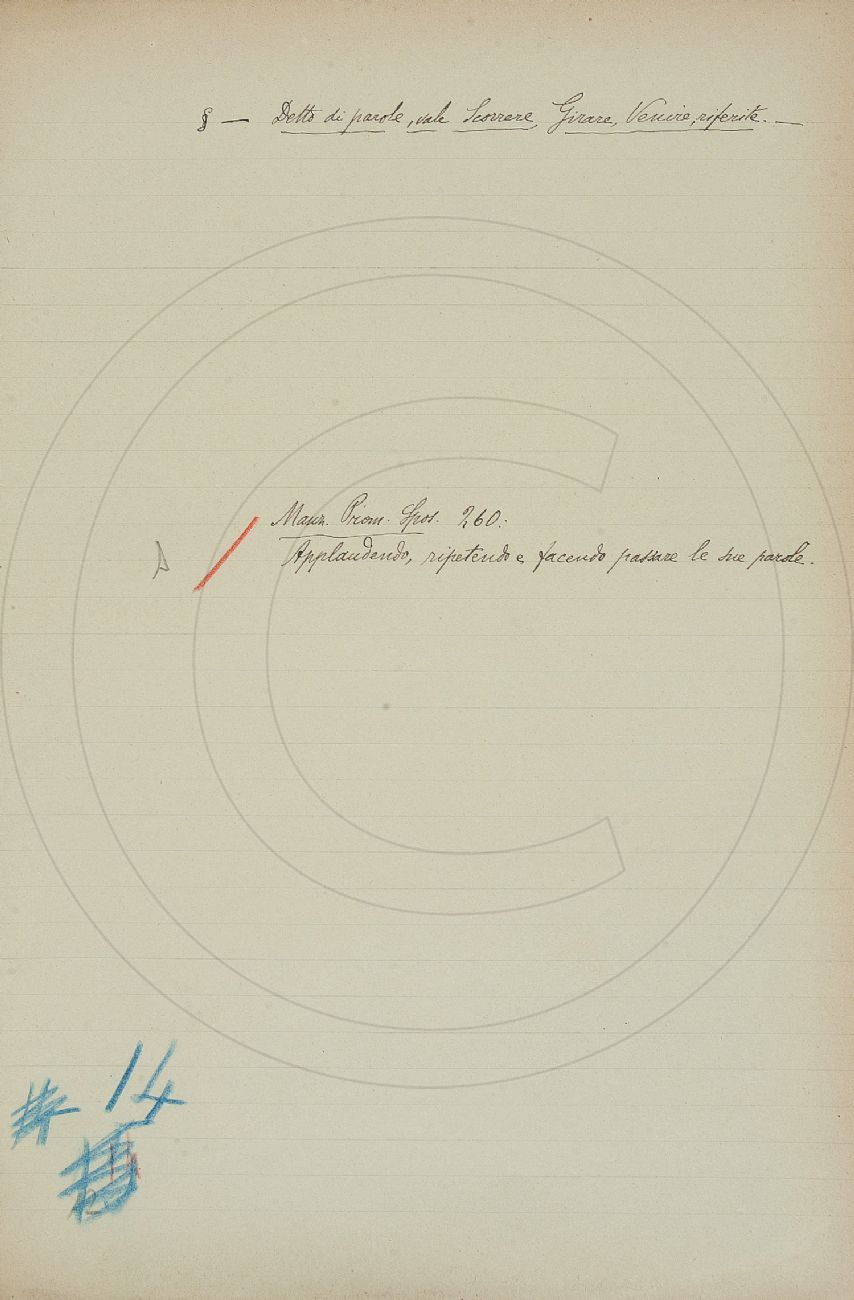 § — Detto di parole, vale Scorrere, Girare, Venire, riferite. —
Manz. Prom. Spos. 260:
A Applaudendo, ripetendo e facendo passare le sue parole.
14